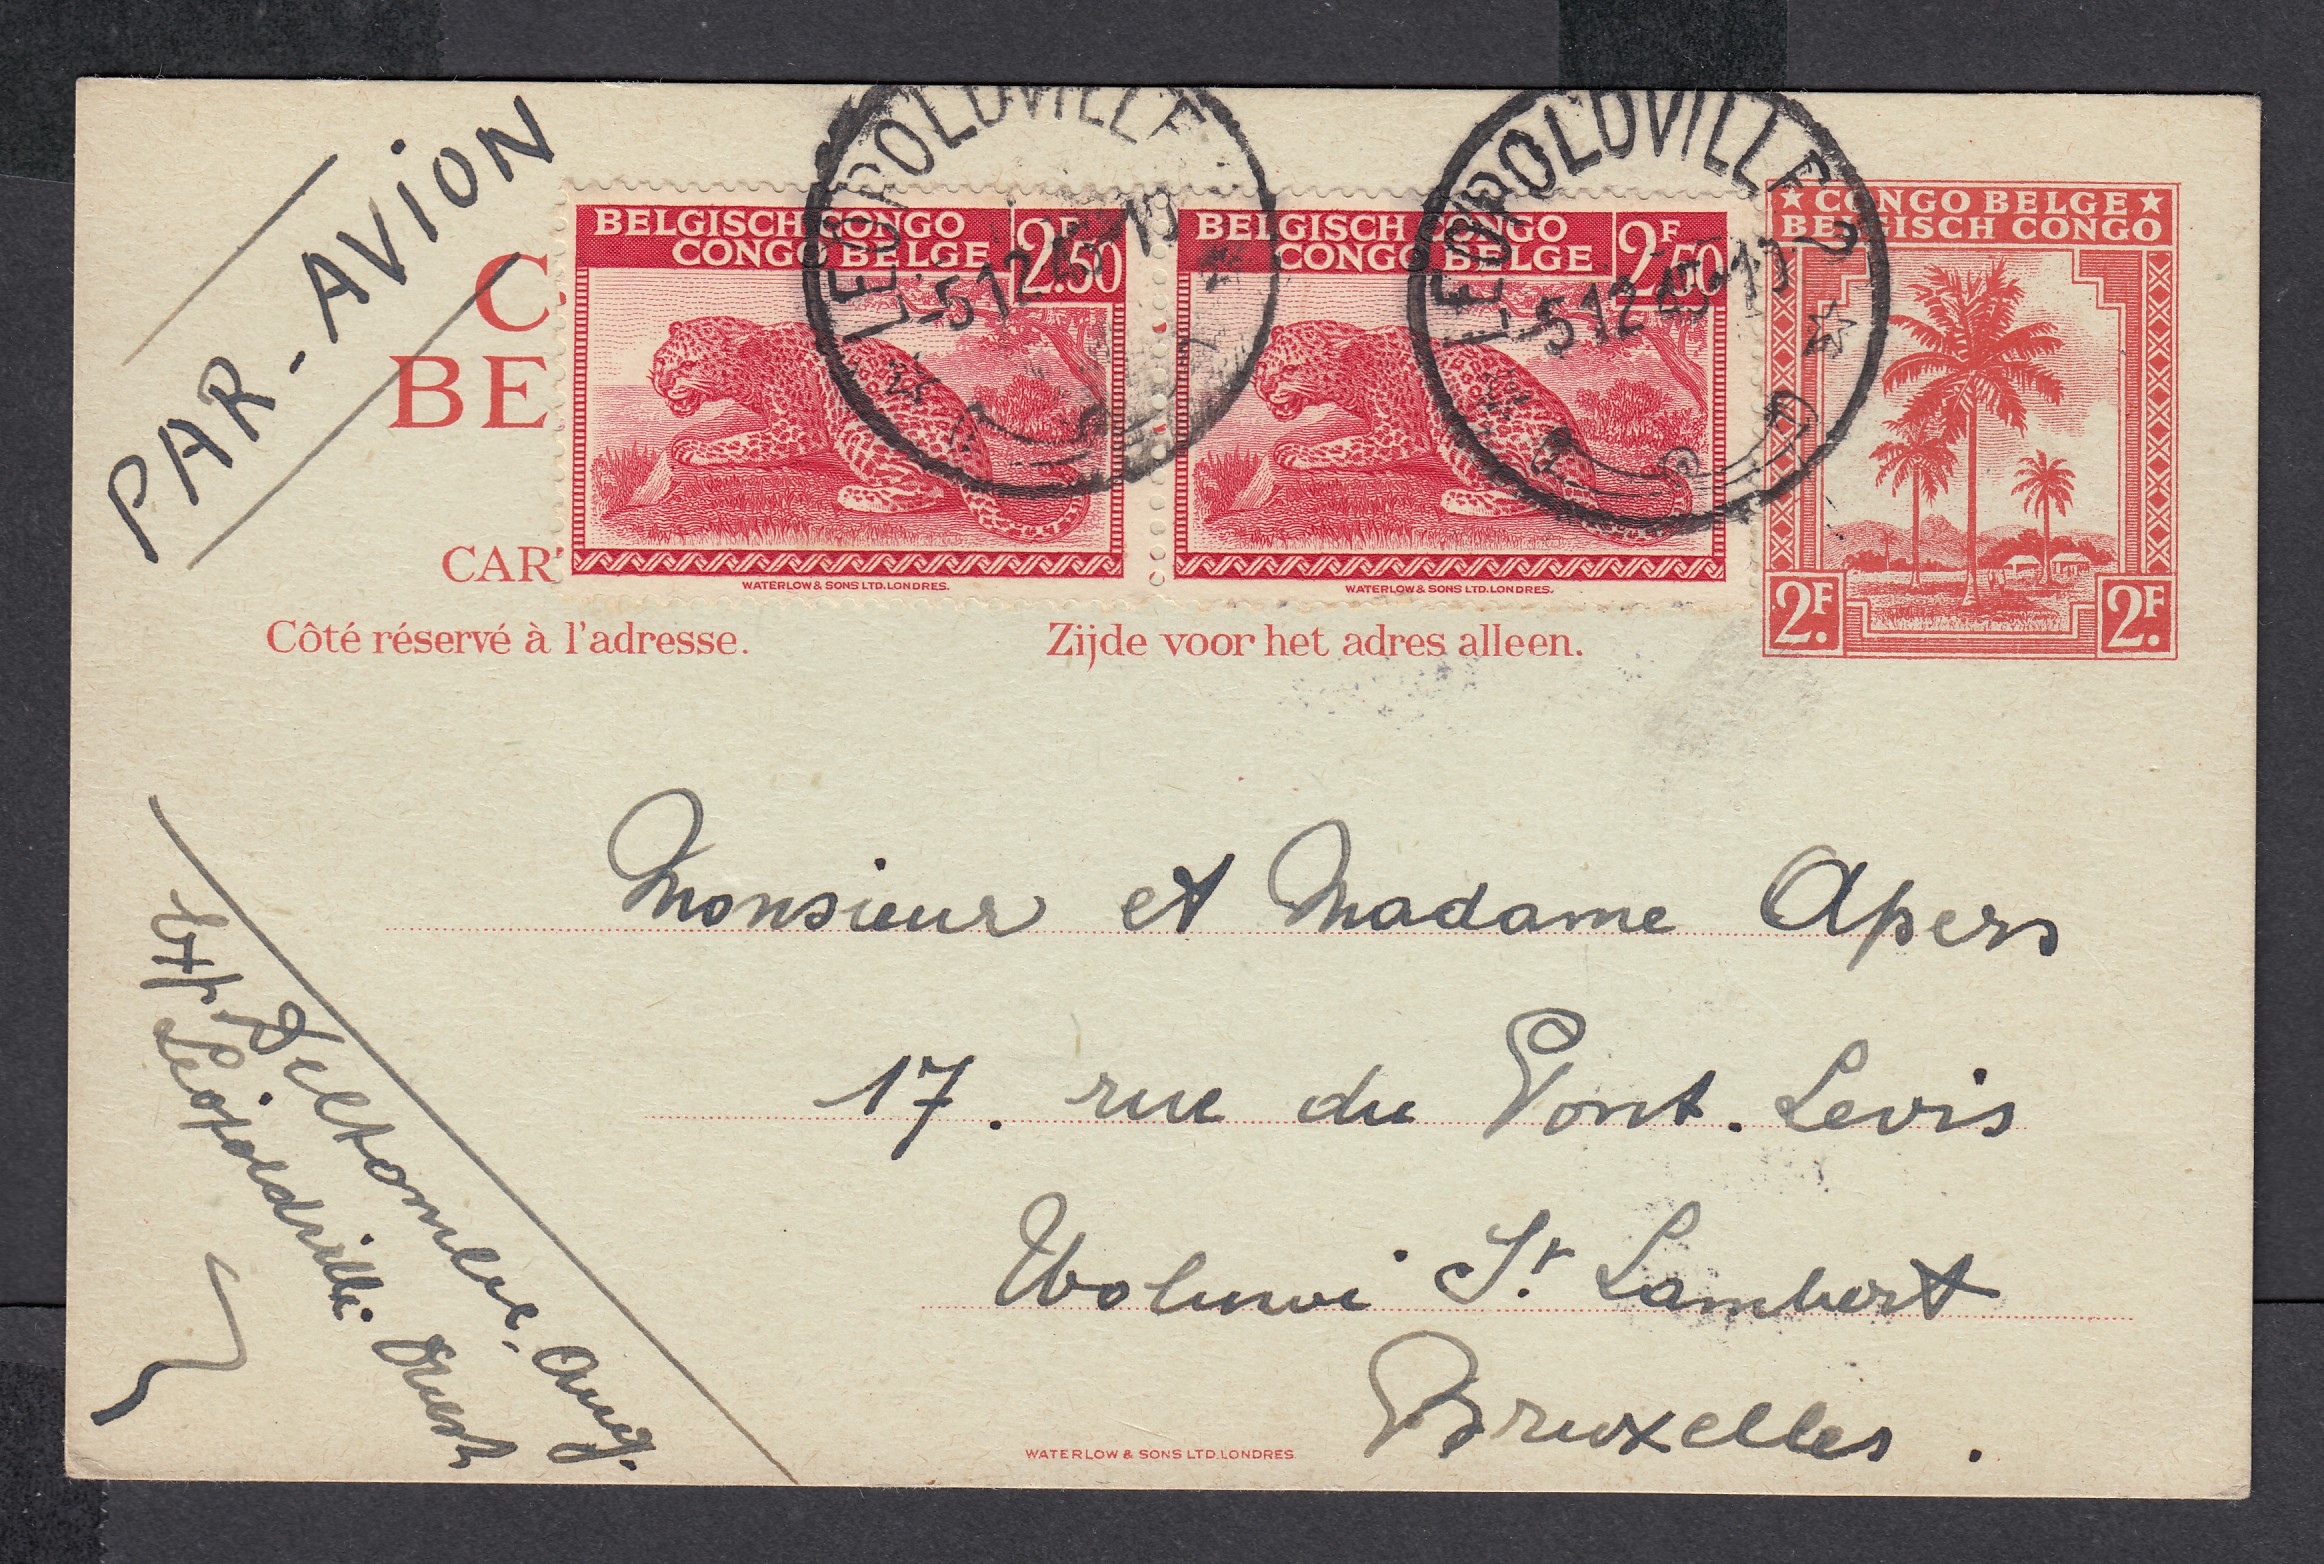 PAR-AVION
C.
BE
CAR
BELGISCH CONGO
CONGO BELGE
2F.50
BELGISCH CONGO
CONGO BELGE
2F.50
LEOPOLDVILLE
-5 12 45-19
LEOPOLDVILLE 2
-5 12 45-19
★ CONGO BELGE ★
BELGISCH CONGO
2F.
2F.
WATERLOW & SONS LTD. LONDRES.
WATERLOW & SONS LTD. LONDRES.
Côté réservé à l'adresse.
Zijde voor het adres alleen.
Monsieur et Madame Apers
17. rue du Pont. Levis
Woluwe St. Lambert
Bruxelles.
Exp. Deltombe. Aug.
Léopoldville. Ouest
WATERLOW & SONS LTD. LONDRES